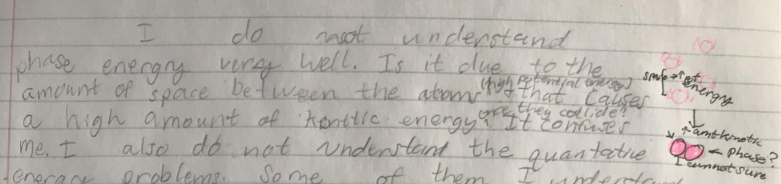 I do not understand
phase energy very well. Is it due to the
amount of space between the atoms (high potential energy) that causes
a high amount of kenttic energy? or they collide? It confuses
me. I also do not understand the quantative
energy problems. Some of them I understand
space energy
phase?
not sure